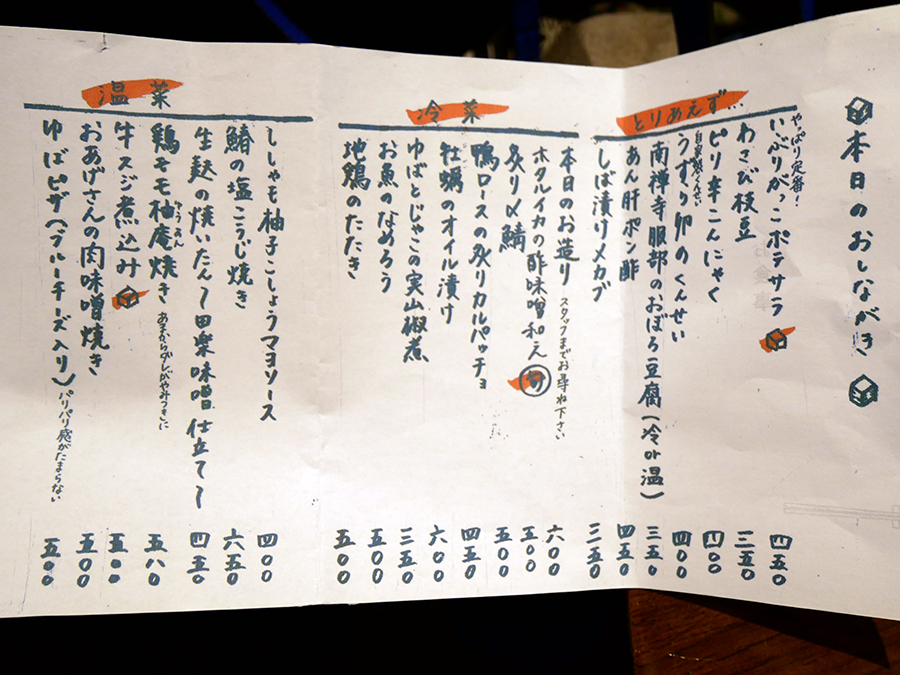 本日のおしながき
とりあえず…
やっぱり定番!
いぶりがっこポテサラ 四五〇
わさび枝豆 三五〇
ピリ辛こんにゃく 四〇〇
うずら卵のくんせい 四〇〇
南禅寺服部のおぼろ豆腐(冷or温) 三五〇
あん肝ポン酢 四五〇
しば漬けメカブ 三五〇
冷菜
本日のお造り スタッフまでお尋ね下さい 六〇〇
ホタルイカの酢味噌和え 旬 五〇〇
炙り〆鯖 五〇〇
鴨ロースの炙りカルパッチョ 四五〇
牡蠣のオイル漬け 六〇〇
ゆばとじゃこの実山椒煮 三五〇
お魚のなめろう 五〇〇
地鶏のたたき 五〇〇
温菜
ししゃも柚子こしょうマヨソース 四〇〇
鰆の塩こうじ焼き 六五〇
生麩の焼いたん〜田楽味噌仕立て〜 四五〇
ゆうあん
鶏モモ柚庵焼き あまからダレがやみつきに 五八〇
牛スジ煮込み 五〇〇
おあげさんの肉味噌焼き 五〇〇
ゆばピザ(ブルーチーズ入り) パリパリ感がたまらない 五〇〇